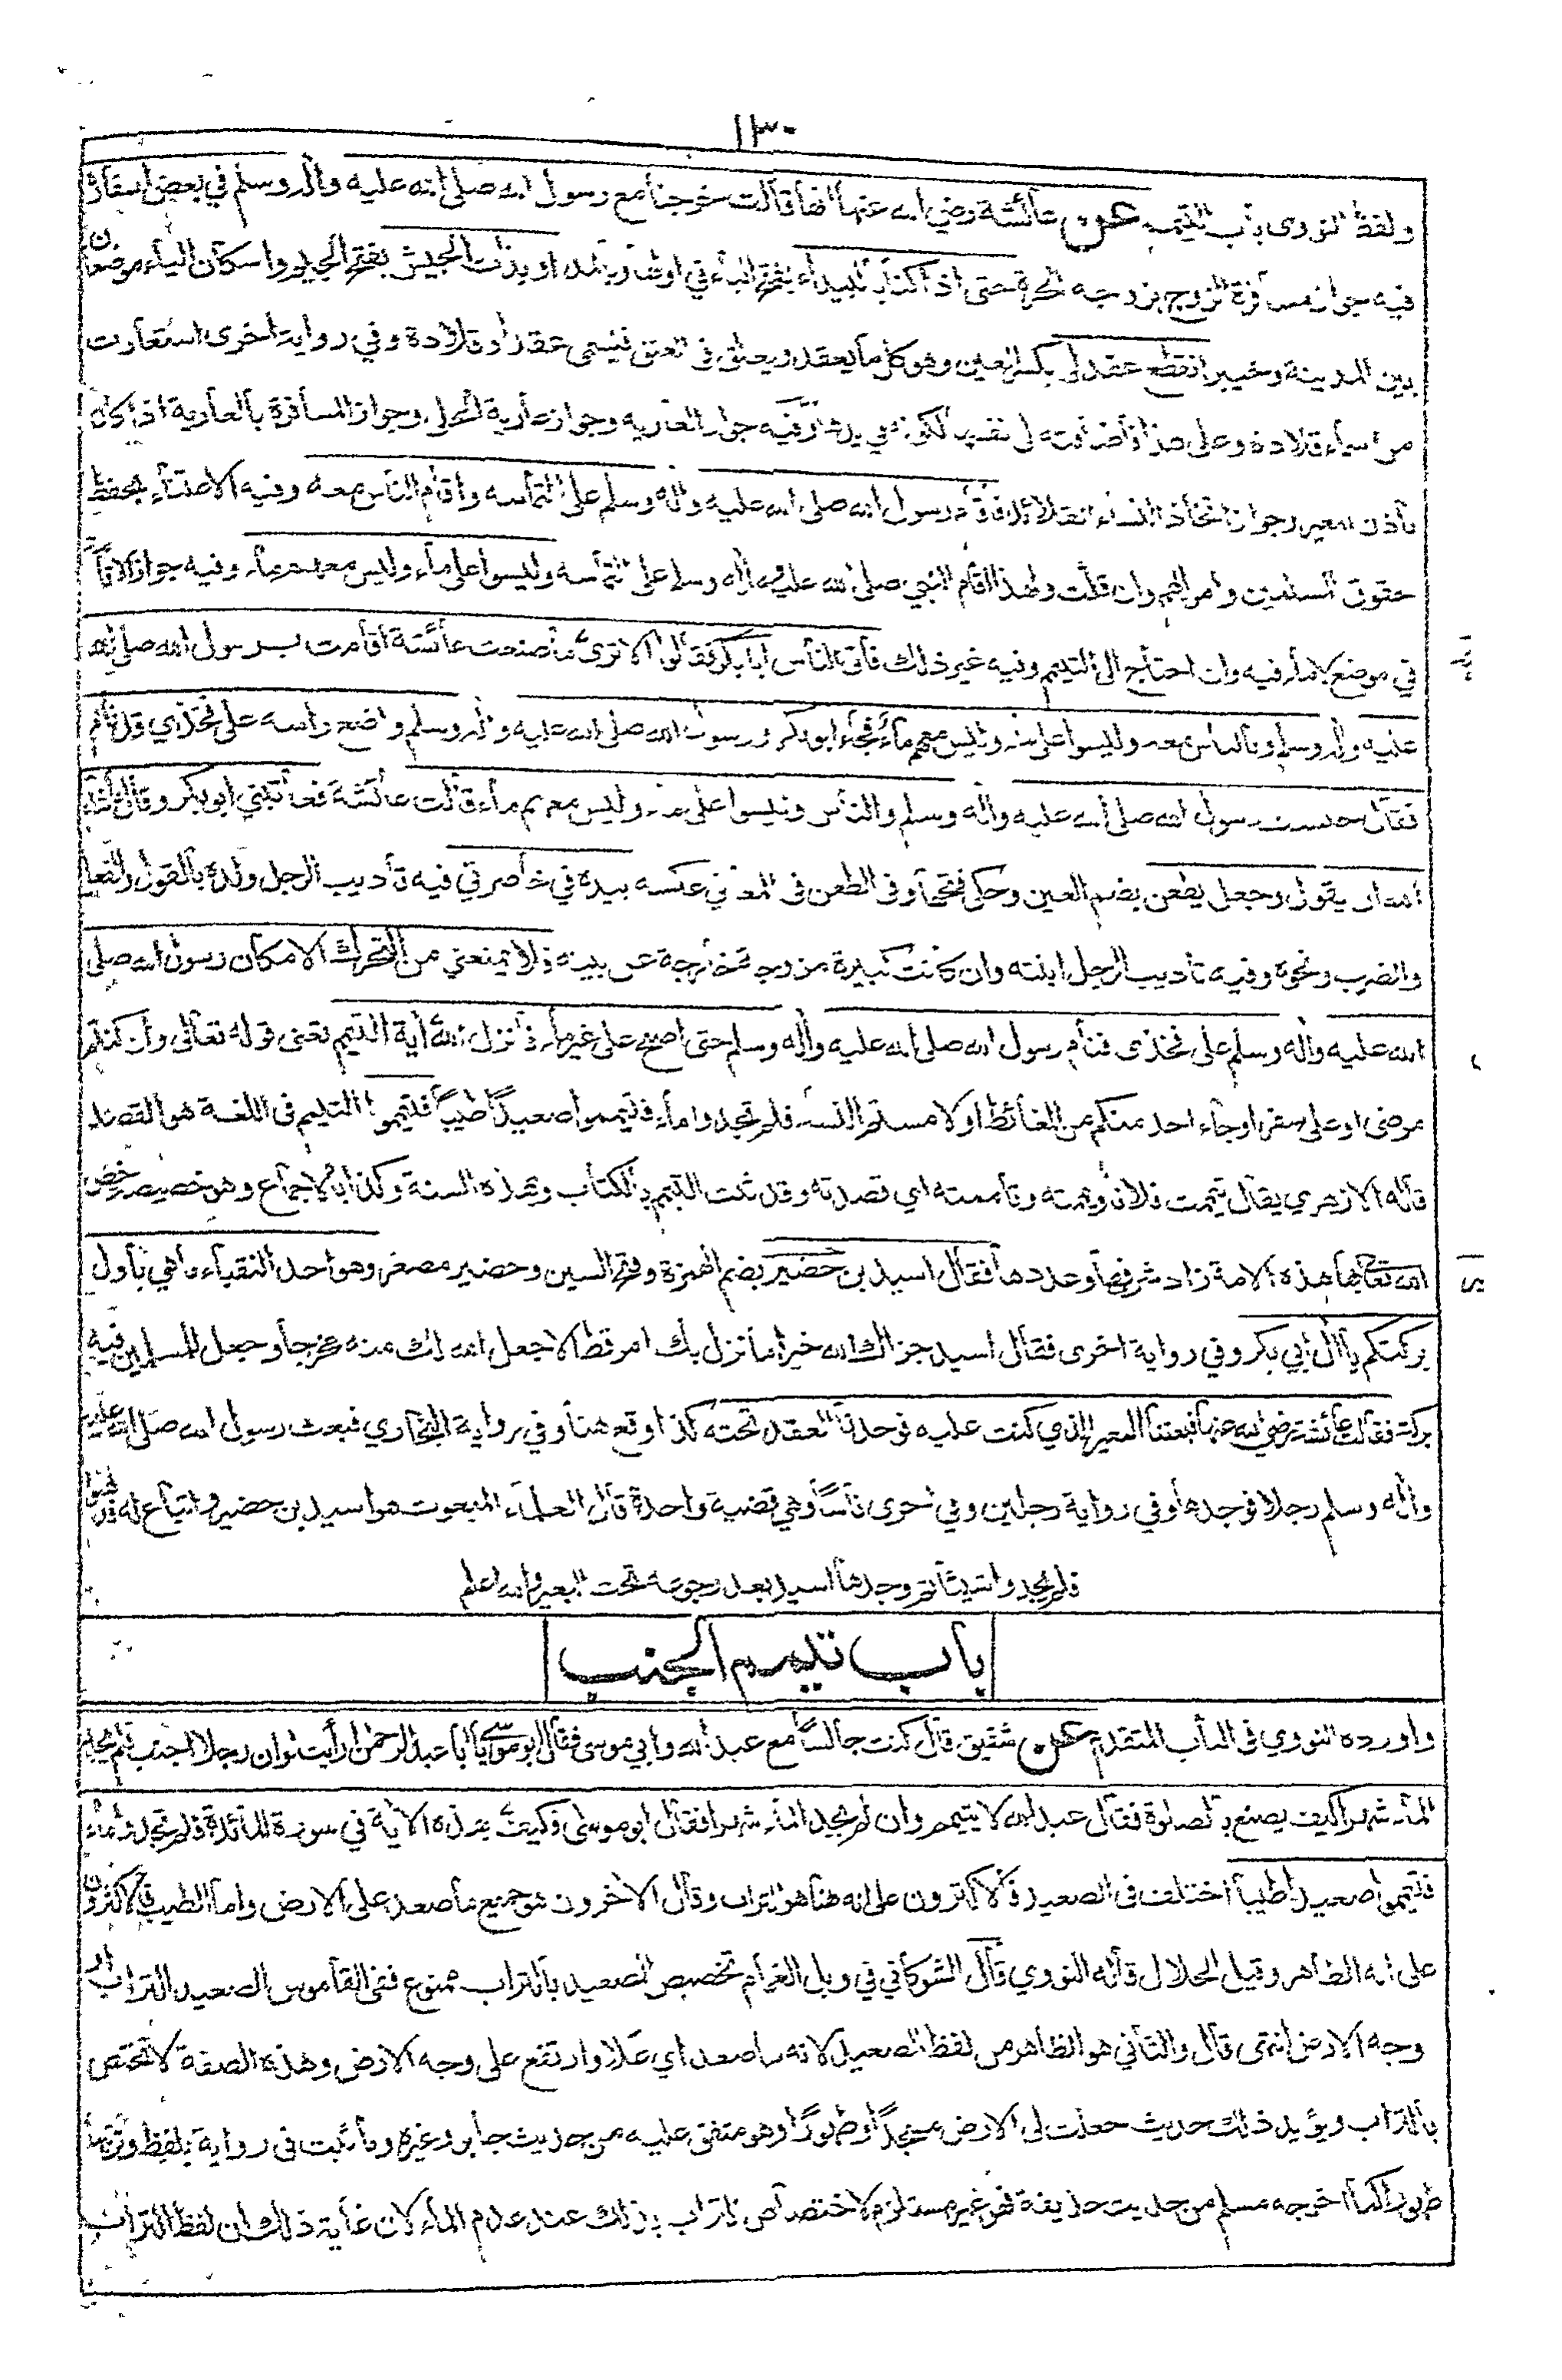 ١٣٠
ولفظ النووى باب التيمم عن عائشة رضي الله عنها انها قالت خرجنا مع رسول الله صلى الله عليه وآله وسلم في بعض اسفاره
فيه جواز مسافرة الزوج بزوجه الحرة حتى اذا كنا بالبيداء بفتح الباء في اوله وبالمد او بذات الجيش بفتح الجيم واسكان الياء موضعان
بين المدينة وخيبر انقطع عقد لى بكسر العين وهو كل ما يعقد ويعلق فى العنق فيسمى عقدا وقلادة وفي رواية اخرى استعارت
من اسماء قلادة وعلى هذا فاضافته لى نفسها لكونه في يدها وفيه جواز العارية وجواز عارية الحلى وجواز المسافرة بالعارية اذا كان
باذن المعير وجواز اتخاذ النساء القلائد فاقام رسول الله صلى الله عليه وآله وسلم على التماسه واقام الناس معه وفيه الاعتناء بحفظ
حقوق المسلمين واموالهم وان قلت ولهذا اقام النبي صلى الله عليه وآله وسلم على التماسه وليسوا على ماء وليس معهم ماء وفيه جواز الاقامة
في موضع لا ماء فيه وان احتاج الى التيمم وفيه غير ذلك فأتى الناس ابا بكر فقالوا الا ترى ما صنعت عائشة اقامت برسول الله صلى الله
عليه وآله وسلم وبالناس معه وليسوا على ماء وليس معهم ماء فجاء ابو بكر ورسول الله صلى الله عليه وآله وسلم واضع راسه على فخذي قد نام
فقال حبست رسول الله صلى الله عليه وآله وسلم والناس وليسوا على ماء وليس معهم ماء قالت عائشة فعاتبني ابو بكر وقال ما شاء
الله ان يقول وجعل يطعن بضم العين وحكى فتحها وفى الطعن فى المعاني عكسه بيده في خاصرتي فيه تأديب الرجل ولده بالقول والفعل
والضرب ونحوه وفيه تاديب الرجل ابنته وان كانت كبيرة مزوجة خارجة عن بيته فلا يمنعني من التحرك الا مكان رسول الله صلى
الله عليه وآله وسلم على فخذى فنام رسول الله صلى الله عليه وآله وسلم حتى اصبح على غير ماء فأنزل الله آية التيمم تعنى قوله تعالى وان كنتم
مرضى او على سفر او جاء احد منكم من الغائط او لامستم النساء فلم تجدوا ماء فتيمموا صعيدا طيبا فتيمموا التيمم فى اللغة هو القصد
قاله الازهري يقال تيممت فلانا ويممته وتأممته اي قصدته وقد ثبت التيمم بالكتاب وبهذه السنة وكذا بالاجماع وهو خصيصة خص
الله تعالى بها هذه الامة زاد شرفها وعددها فقال اسيد بن حضير بضم الهمزة وفتح السين وحضير مصغر وهو احد النقباء ما هي باول
بركتكم يا آل ابي بكر وفي رواية اخرى فقال اسيد جزاك الله خيرا ما نزل بك امر قط الا جعل الله لك منه مخرجا وجعل للمسلمين فيه
بركة فقالت عائشة رضي الله عنها فبعثنا البعير الذي كنت عليه فوجدنا العقد تحته كذا وقع هنا وفي رواية البخاري فبعث رسول الله صلى الله عليه
وآله وسلم رجلا فوجدها وفي رواية رجلين وفي اخرى ناسا وهي قضية واحدة قال العلماء المبعوث هو اسيد بن حضير واتباع له فذهبوا
فلم يجدوا شيئا ثم وجدها اسيد بعد رجوعه تحت البعير والله اعلم
باب تيمم الجنب
واورده النووي فى الباب المتقدم عن شقيق قال كنت جالسا مع عبد الله وابي موسى فقال ابو موسى يا ابا عبد الرحمن ارأيت لو ان رجلا اجنب فلم يجد
الماء شهرا كيف يصنع بالصلوة فقال عبد الله لا يتيمم وان لم يجد الماء شهرا فقال ابو موسى فكيف بهذه الاية في سورة المائدة فلم تجدوا ماء
فتيمموا صعيدا طيبا اختلف فى الصعيد فالاكثرون على انه هنا هو التراب وقال الآخرون هو جميع ما صعد على الارض واما الطيب فالاكثرون
على انه الطاهر وقيل الحلال قاله النووي قال الشوكاني في وبل الغمام تخصيص الصعيد بالتراب ممنوع ففى القاموس الصعيد التراب او
وجه الارض انتهى قال والثاني هو الظاهر من لفظ الصعيد لانه ما صعد اي علا وارتفع على وجه الارض وهذه الصفة لا تختص
بالتراب ويؤيد ذلك حديث جعلت لى الارض مسجدا وطهورا وهو متفق عليه من حديث جابر وغيره وما ثبت فى رواية بلفظ وتربتها
طهورا كما اخرجه مسلم من حديث حذيفة فهو غير مستلزم لاختصاص التراب بذلك عند عدم الماء لان غاية ذلك ان لفظ التراب